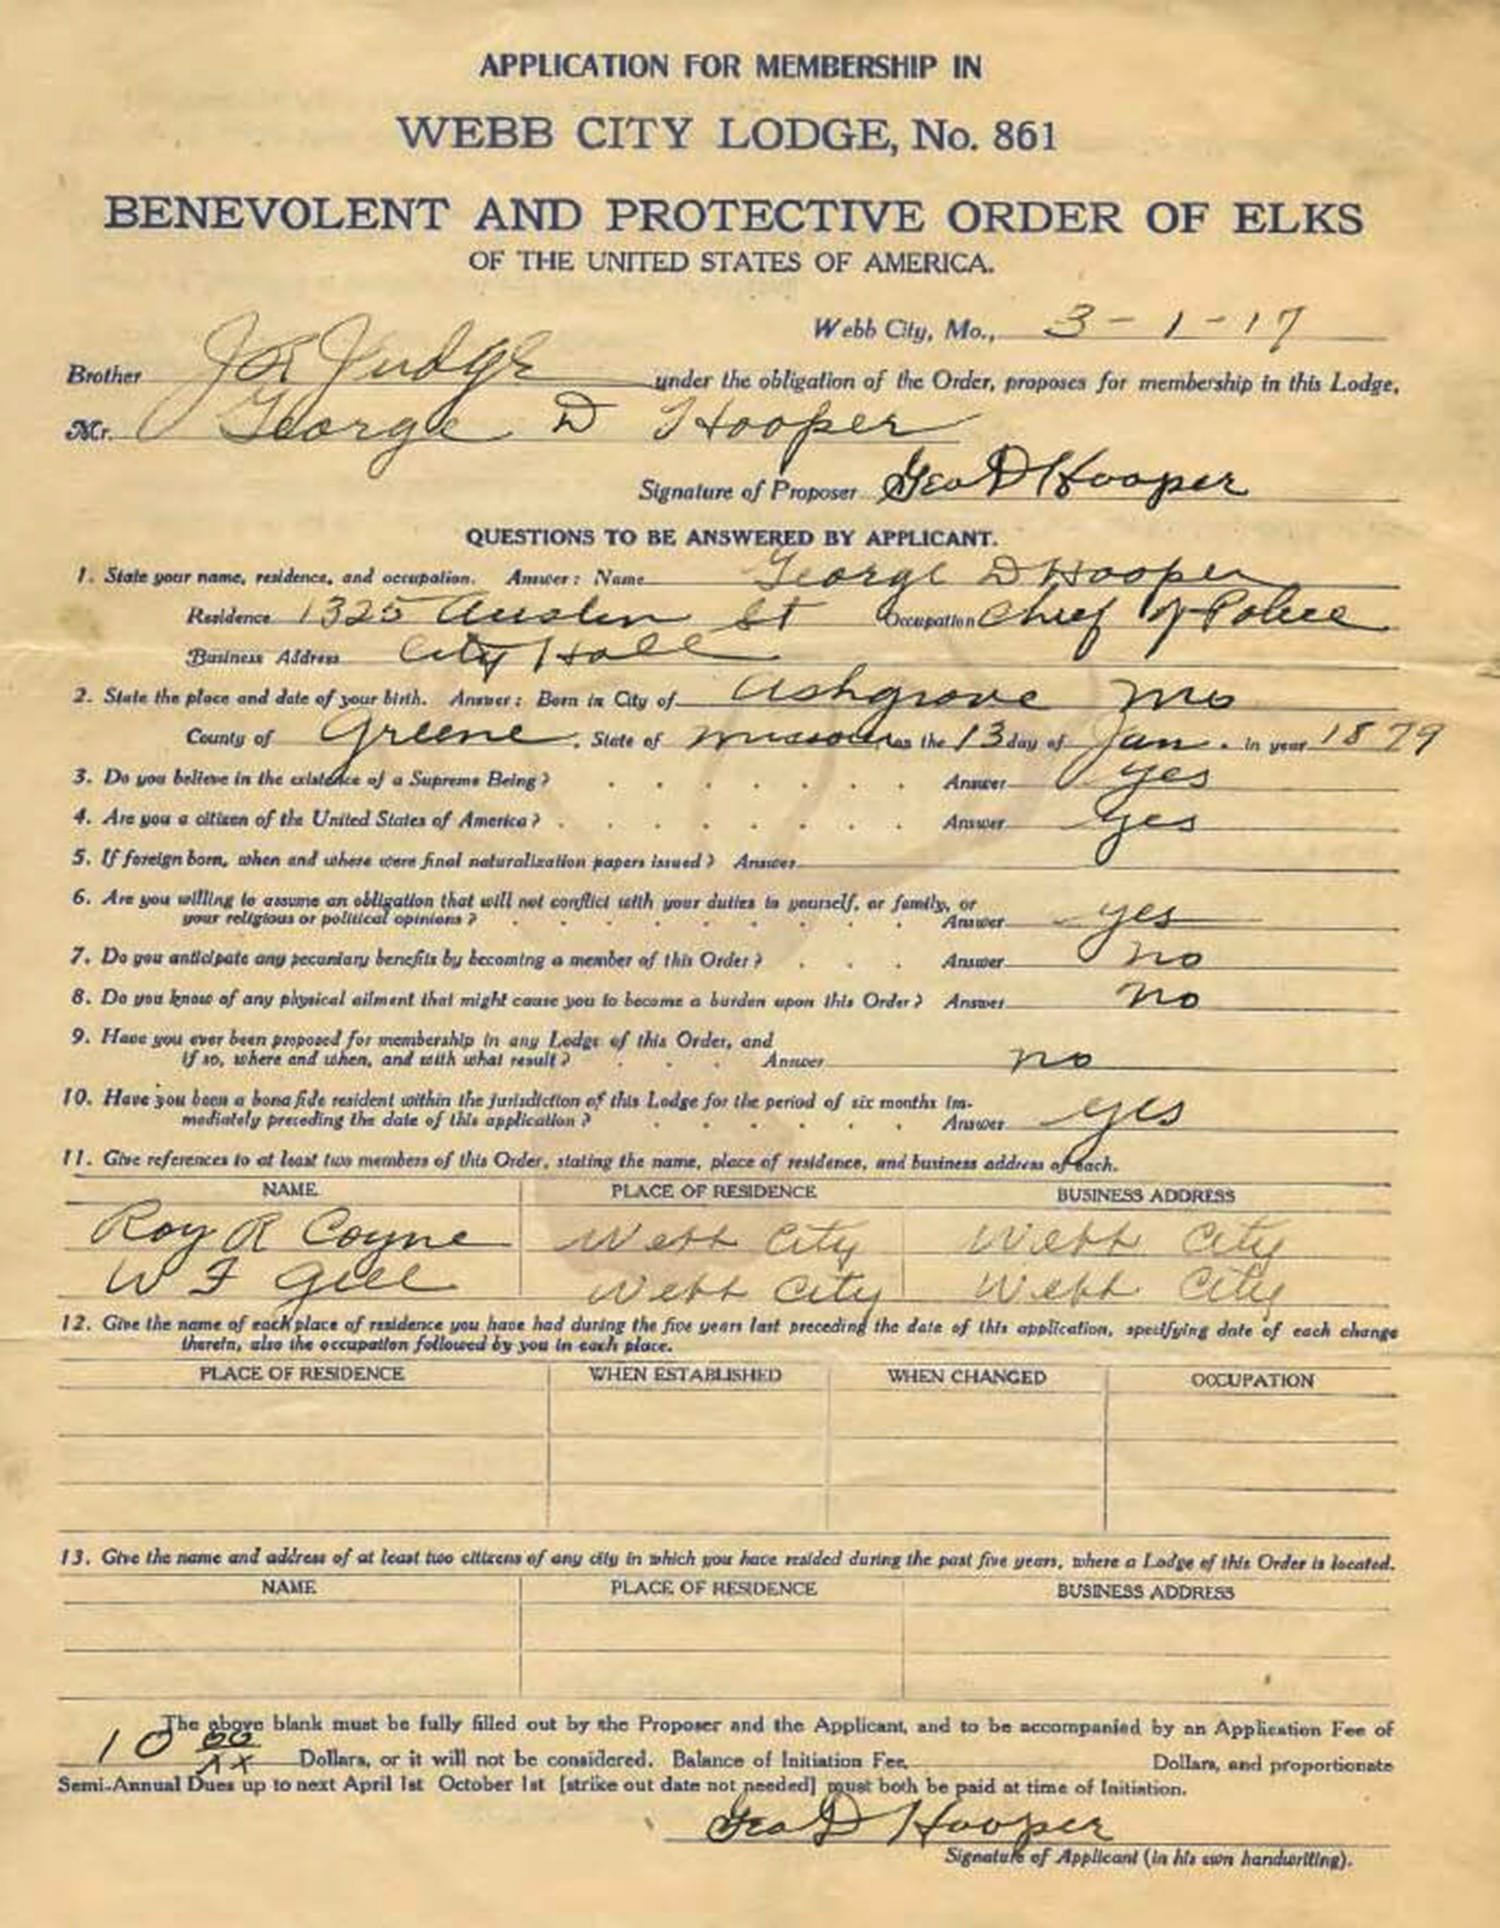 APPLICATION FOR MEMBERSHIP IN
WEBB CITY LODGE, No. 861
BENEVOLENT AND PROTECTIVE ORDER OF ELKS
OF THE UNITED STATES OF AMERICA.
Webb City, Mo., 3-1-17
Brother J R Judge under the obligation of the Order, proposes for membership in this Lodge,
Mr. George D Hooper
Signature of Proposer Geo D Hooper
QUESTIONS TO BE ANSWERED BY APPLICANT.
1. State your name, residence, and occupation. Answer: Name George D Hooper
Residence 1325 Austin St Occupation Chief of Police
Business Address City Hall
2. State the place and date of your birth. Answer: Born in City of Ashgrove Mo
County of Greene, State of Missouri on the 13 day of Jan. in year 1879
3. Do you believe in the existence of a Supreme Being? Answer yes
4. Are you a citizen of the United States of America? Answer yes
5. If foreign born, when and where were final naturalization papers issued? Answer
6. Are you willing to assume an obligation that will not conflict with your duties to yourself, or family, or
your religious or political opinions? Answer yes
7. Do you anticipate any pecuniary benefits by becoming a member of this Order? Answer no
8. Do you know of any physical ailment that might cause you to become a burden upon this Order? Answer no
9. Have you ever been proposed for membership in any Lodge of this Order, and
if so, where and when, and with what result? Answer no
10. Have you been a bona fide resident within the jurisdiction of this Lodge for the period of six months im-
mediately preceding the date of this application? Answer yes
11. Give references to at least two members of this Order, stating the name, place of residence, and business address of each.
NAME PLACE OF RESIDENCE BUSINESS ADDRESS
Roy R Coyne Webb City Webb City
W F Gill Webb City Webb City
12. Give the name of each place of residence you have had during the five years last preceding the date of this application, specifying date of each change
therein, also the occupation followed by you in each place.
PLACE OF RESIDENCE WHEN ESTABLISHED WHEN CHANGED OCCUPATION
13. Give the name and address of at least two citizens of any city in which you have resided during the past five years, where a Lodge of this Order is located.
NAME PLACE OF RESIDENCE BUSINESS ADDRESS
The above blank must be fully filled out by the Proposer and the Applicant, and to be accompanied by an Application Fee of
10 00/xx Dollars, or it will not be considered. Balance of Initiation Fee, Dollars, and proportionate
Semi-Annual Dues up to next April 1st October 1st [strike out date not needed] must both be paid at time of Initiation.
Geo D Hooper
Signature of Applicant (in his own handwriting).